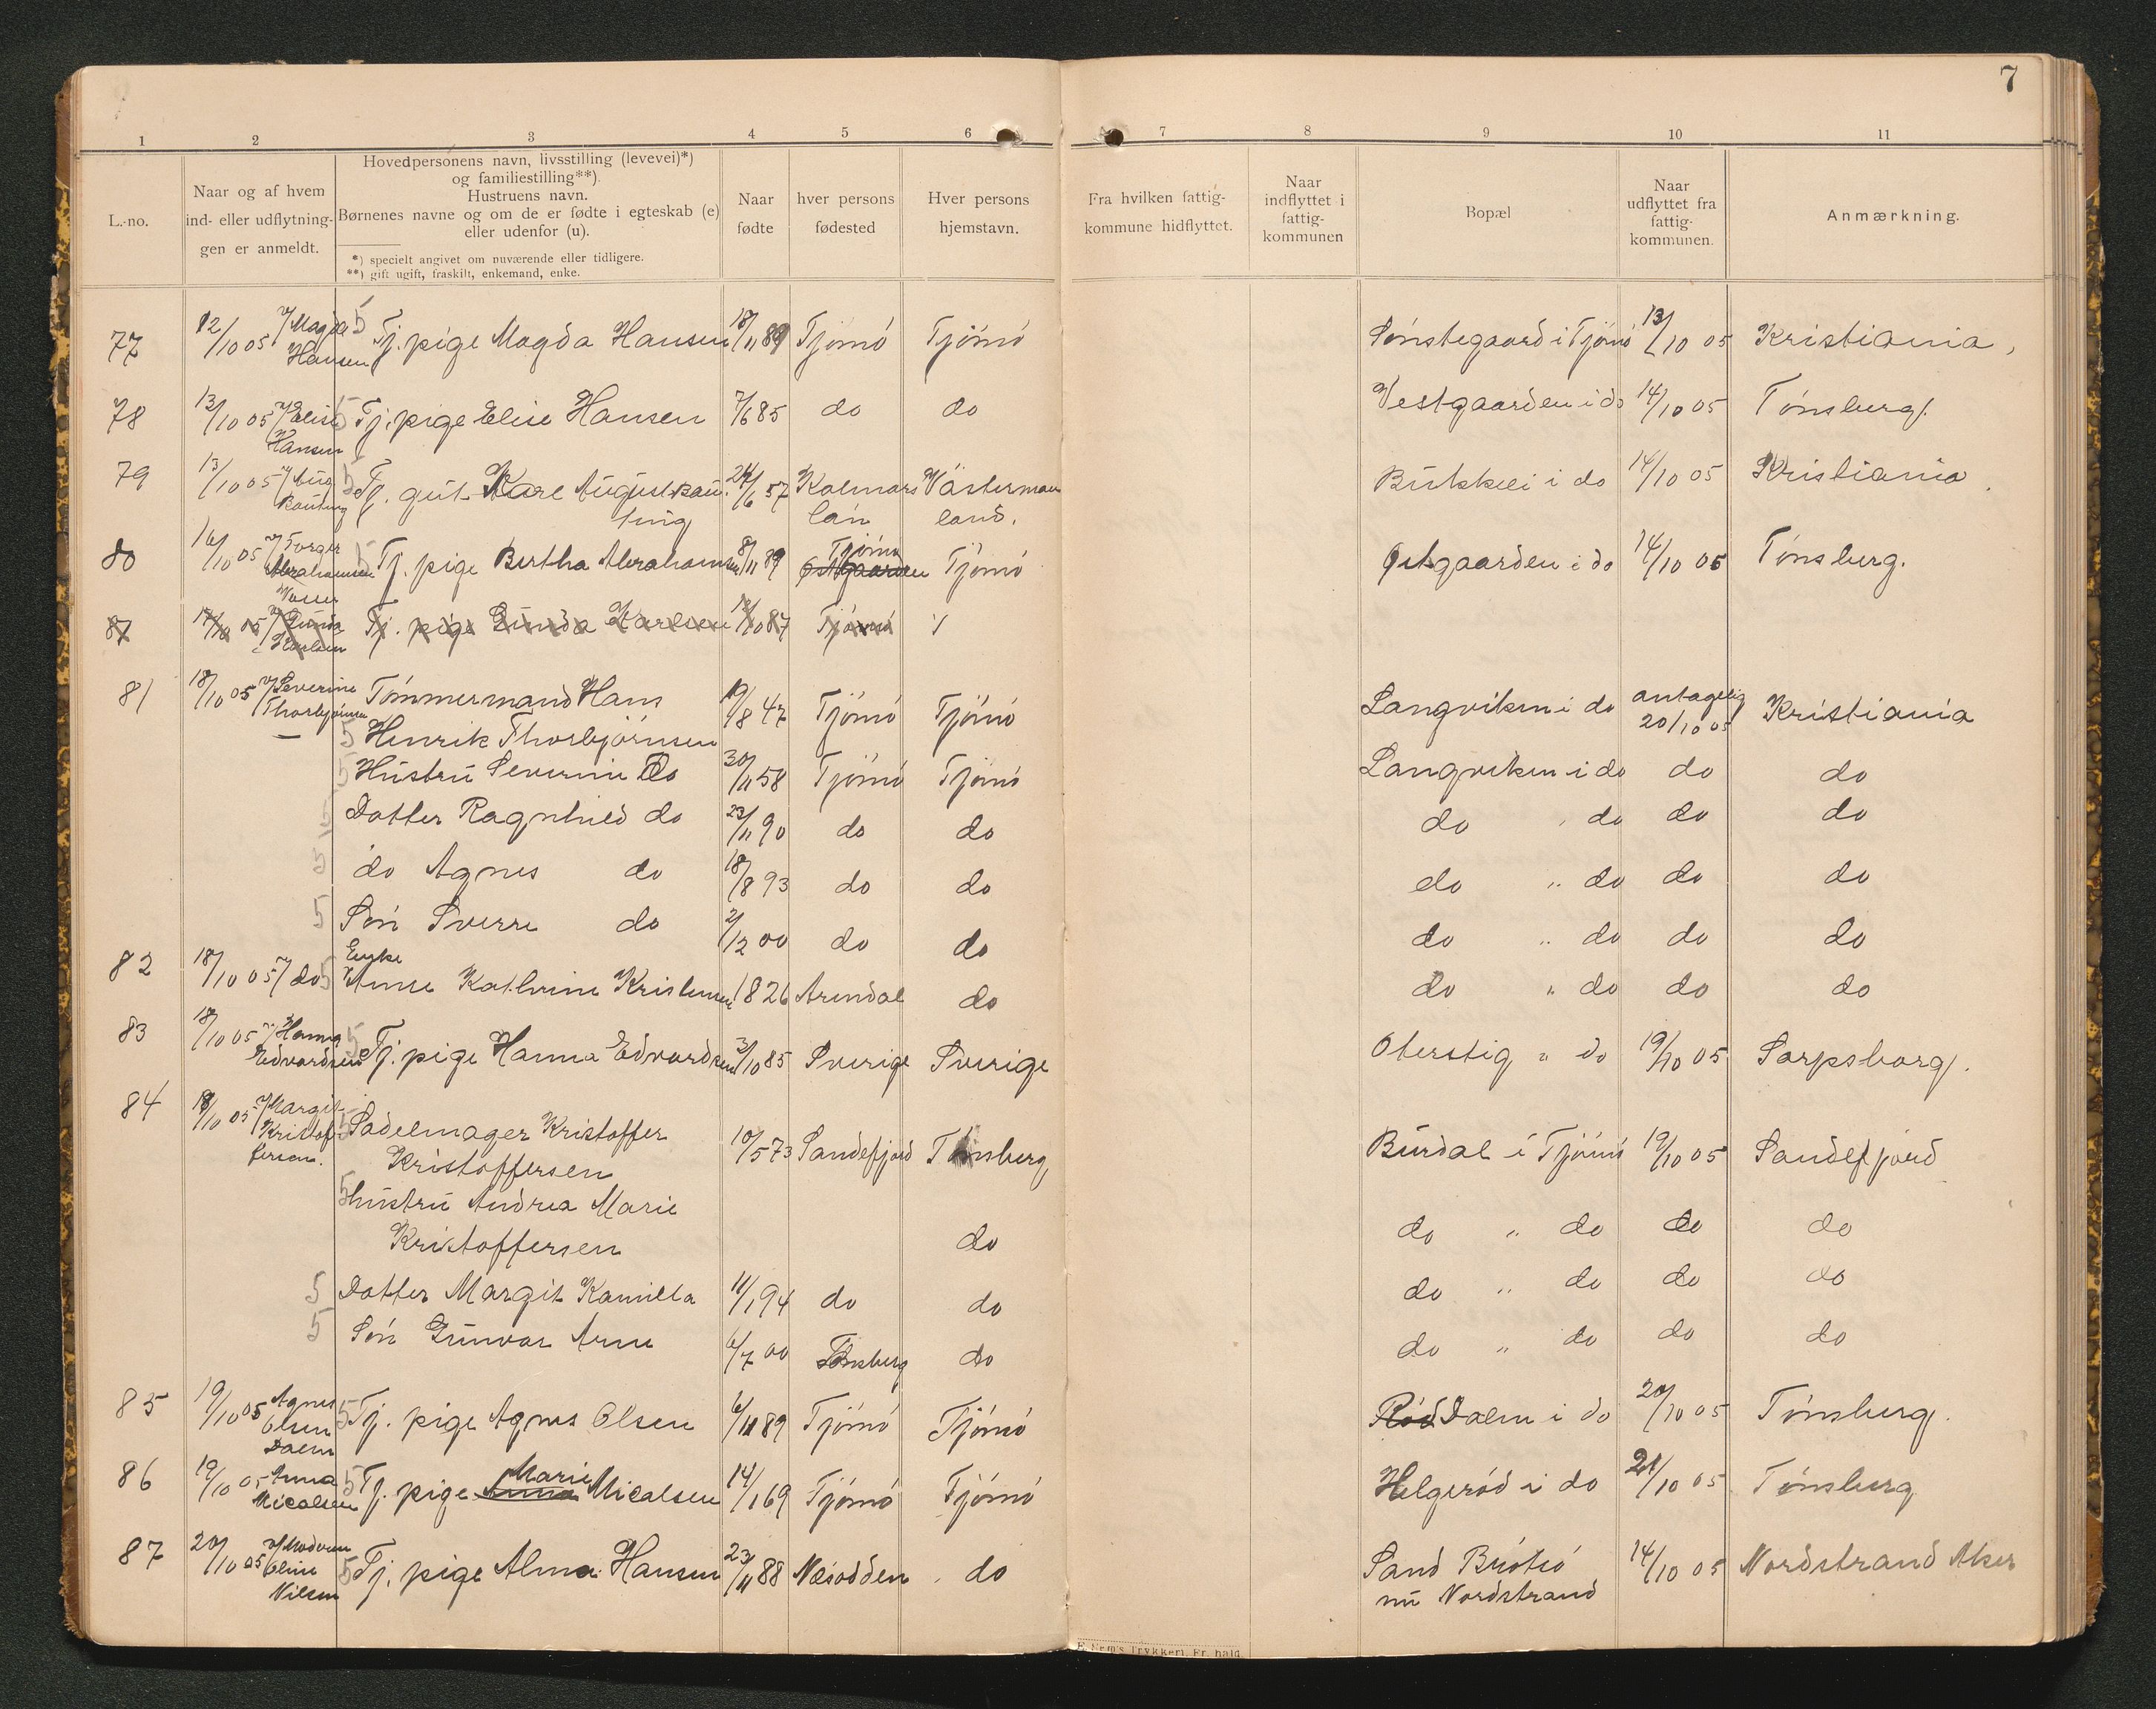 7
1 2 3 4 5 6 7 8 9 10 11
L.-no.
Naar og af hvem
ind- eller udflytning-
gen er anmeldt.
Hovedpersonens navn, livsstilling (levevei)*)
og familiestilling**).
Hustruens navn.
Børnenes navne og om de er fødte i egteskab (e)
eller udenfor (u).
*) specielt angivet om nuværende eller tidligere.
**) gift ugift, fraskilt, enkemand, enke.
Naar
fødte
hver persons
fødested
Hver persons
hjemstavn.
Fra hvilken fattig-
kommune hidflyttet.
Naar
indflyttet i
fattig-
kommunen
Bopæl
Naar
udflyttet fra
fattig-
kommunen.
Anmærkning.
77 12/10 05 v/ Magda 5 Tj. pige Magda Hansen 18/11 89 Tjømø Tjømø Sønstegaard i Tjømø 13/10 05 Kristiania,
Hansen
78 13/10 05 v/ Elise 5 Tj. pige Elise Hansen 7/6 85 do do Vestgaarden i do 14/10 05 Tønsberg.
Hansen
79 13/10 05 v/ Aug 5 Tj. gut Karl August Rau- 24/6 57 Kalmars Västerman Bukkeli i do 14/10 05 Kristiania.
Rauting ting län land.
80 16/10 05 v/ Torger 5 Tj. pige Bertha Abrahamsen 8/11 89 Tjømø Tjømø Østgaarden i do 14/10 05 Tønsberg.
Abrahamsen Østgaarden
87 17/10 05 v/ Gunda Tj. pige Gunda Karlsen 12/10 87 Tjømø
Karlsen
81 18/10 05 v/ Severine Tømmermand Hans 19/8 47 Tjømø Tjømø Langviken i do antagelig Kristiania
Thorbjørnsen 20/10 05
5 Henrik Thorbjørnsen
5 Hustru Severine Do 30/11 58 Tjømø Tjømø Langviken i do do do
5 Datter Ragnhild do 23/11 90 do do do " do do do
5 do Agnes do 18/8 93 do do do " do do do
5 Søn Sverre do 2/12 00 do do do " do do do
Enke
82 18/10 05 v/ do 5 Anne Kathrine Kristensen 1826 Arendal do do " do do do
83 18/10 05 v/ Hanna 5 Tj. pige Hanna Edvardsen 3/10 85 Sverige Sverige Oterstig " do 19/10 05 Sarpsborg.
Edvardsen
84 18/10 05 v/ Margit 5 Sadelmager Kristoffer 10/5 73 Sandefjord Tønsberg Burdal i Tjømø 19/10 05 Sandefjord
Kristof-
fersen. Kristoffersen
5 Hustru Andrea Marie
Kristoffersen do do " do do do
5 Datter Margit Kamilla 11/1 94 do do do " do do do
5 Søn Gunvar Arne 6/7 00 Tønsberg do do " do do do
85 19/10 05 Agnes 5 Tj. pige Agnes Olsen 6/11 89 Tjømø Tjømø Rød Dalen i do 20/10 05 Tønsberg.
Olsen
Dalen
86 19/10 05 Anna 5 Tj. pige Anna Marie Micalsen 14/1 69 Tjømø Tjømø Helgerød i do 21/10 05 Tønsberg
Micalsen
87 20/10 05 v/ Moderen 5 Tj. pige Alma Hansen 23/11 88 Næsodden do Sand Brøtsø 14/10 05 Nordstrand Aker
Oline
Nilsen nu Nordstrand